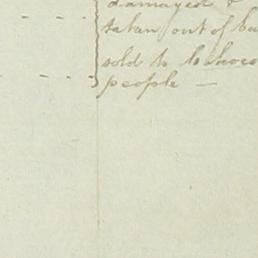 damaged &
taken out of
sold to
people —